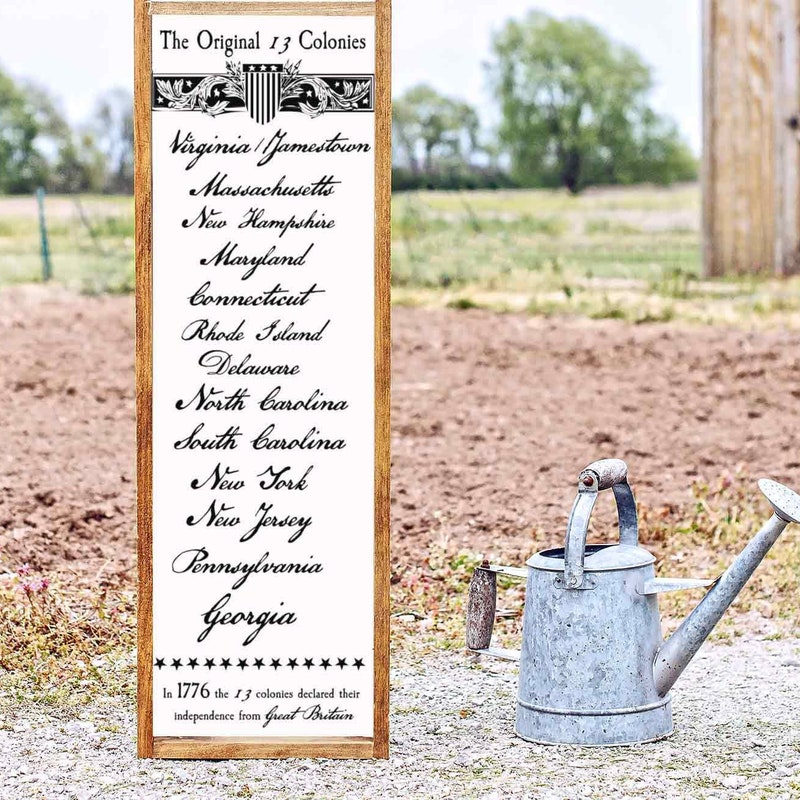 The Original 13 Colonies
Virginia/Jamestown
Massachusetts
New Hampshire
Maryland
Connecticut
Rhode Island
Delaware
North Carolina
South Carolina
New York
New Jersey
Pennsylvania
Georgia
In 1776 the 13 colonies declared their
independence from Great Britain